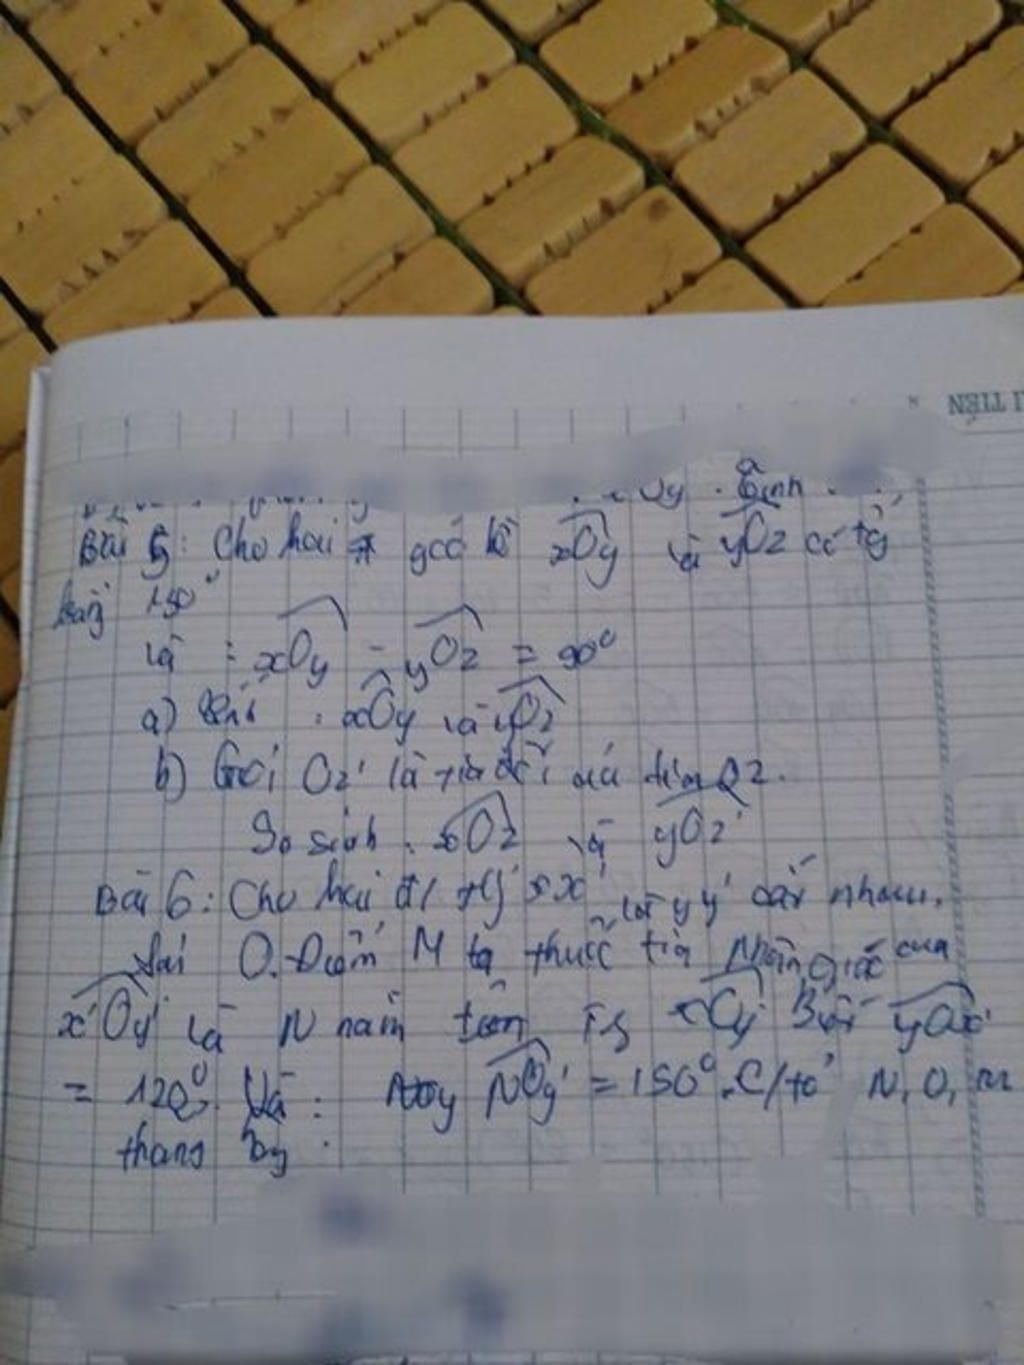 TIẾN
Oy. Tính
Bài 5: Cho hai góc kề xOy và yOz có tg
bằng 150°
và : xOy - yOz = 90°
a) Tính : xOy và yOz
b) Gọi Oz' là tia đối của tia Oz.
So sánh . xOz và yOz'
Bài 6: Cho hai đt xx' và yy' cắt nhau,
tại O. Điểm M ta thuộc tia Phân giác của
x'Oy' và N nằm trên Biết yOx'
= 120°. Và : NOy' = 150° .C/tỏ N, O, M
thang hg .